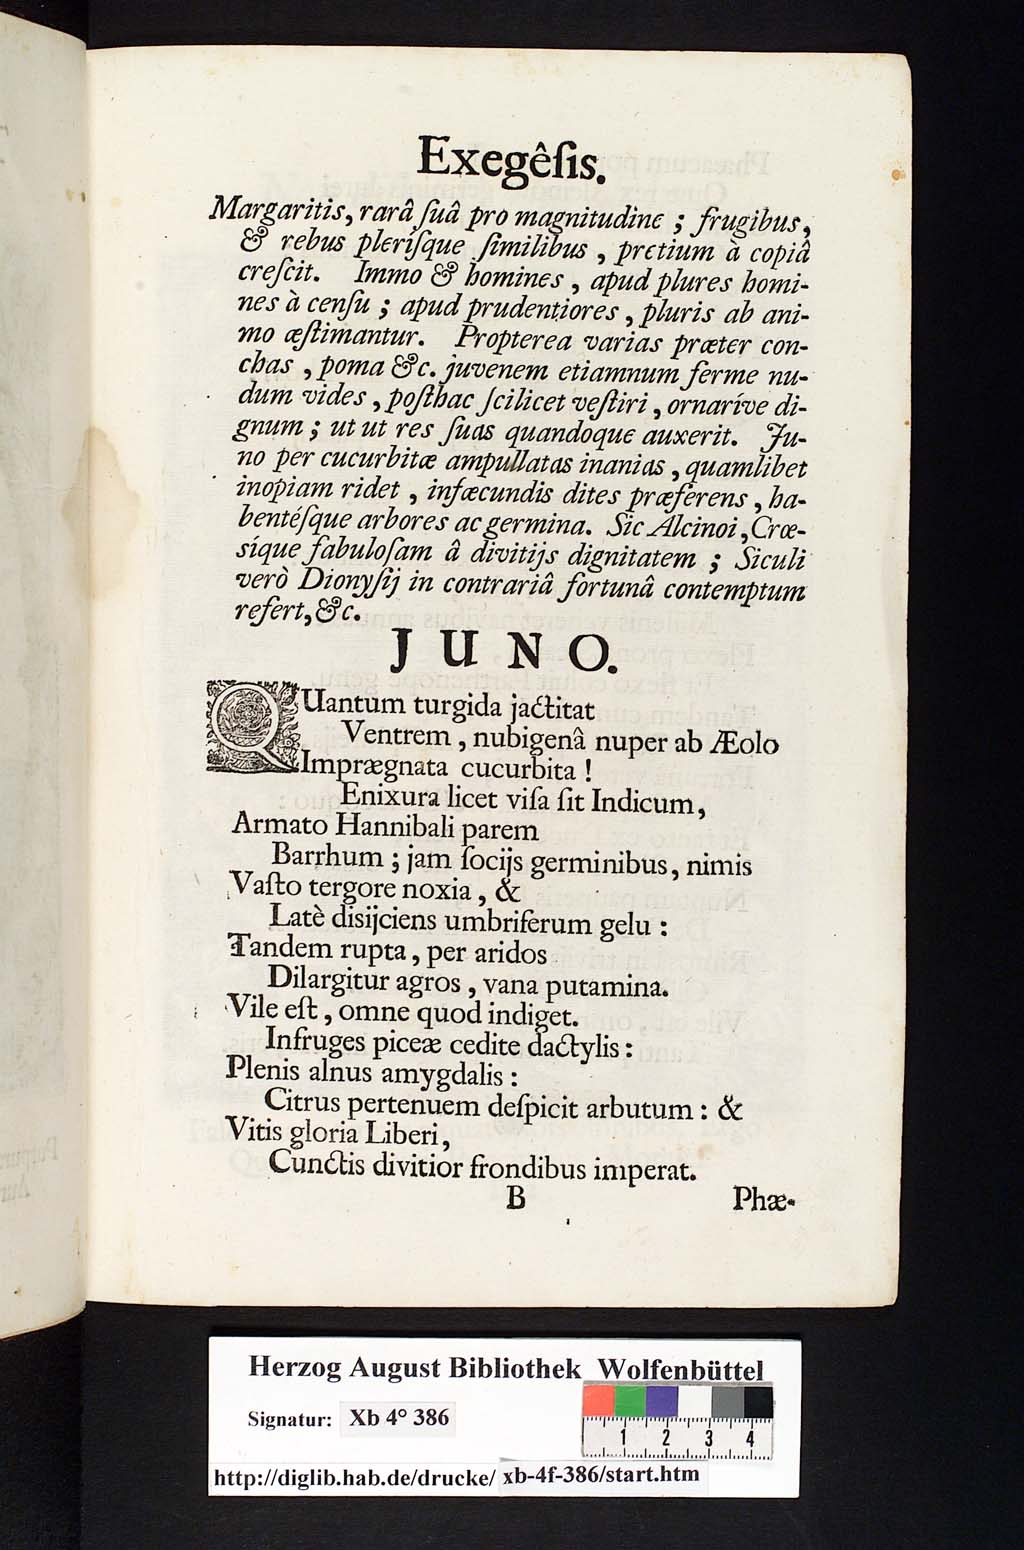 Exegêſis.
Margaritis, rarâ ſuâ pro magnitudine ; frugibus,
& rebus pleriſque ſimilibus , pretium à copiâ
creſcit. Immo & homines , apud plures homi-
nes à cenſu ; apud prudentiores , pluris ab ani-
mo æſtimantur. Propterea varias præter con-
chas , poma &c. juvenem etiamnum ferme nu-
dum vides , poſthac ſcilicet veſtiri , ornaríve di-
gnum ; ut ut res ſuas quandoque auxerit. Ju-
no per cucurbitæ ampullatas inanias , quamlibet
inopiam ridet , infæcundis dites præferens , ha-
bentéſque arbores ac germina. Sic Alcinoi , Crœ-
síque fabuloſam â divitijs dignitatem ; Siculi
verò Dionyſij in contrariâ fortunâ contemptum
refert, &c.
JUNO.
QUantum turgida jactitat
Ventrem , nubigenâ nuper ab Æolo
Imprægnata cucurbita !
Enixura licet viſa ſit Indicum,
Armato Hannibali parem
Barrhum ; jam ſocijs germinibus, nimis
Vaſto tergore noxia , &
Latè disijciens umbriferum gelu :
Tandem rupta , per aridos
Dilargitur agros , vana putamina.
Vile eſt , omne quod indiget.
Infruges piceæ cedite dactylis :
Plenis alnus amygdalis :
Citrus pertenuem deſpicit arbutum : &
Vitis gloria Liberi,
Cunctis divitior frondibus imperat.
B Phæ-
Herzog August Bibliothek Wolfenbüttel
Signatur: Xb 4° 386
1 2 3 4
http://diglib.hab.de/drucke/ xb-4f-386/start.htm